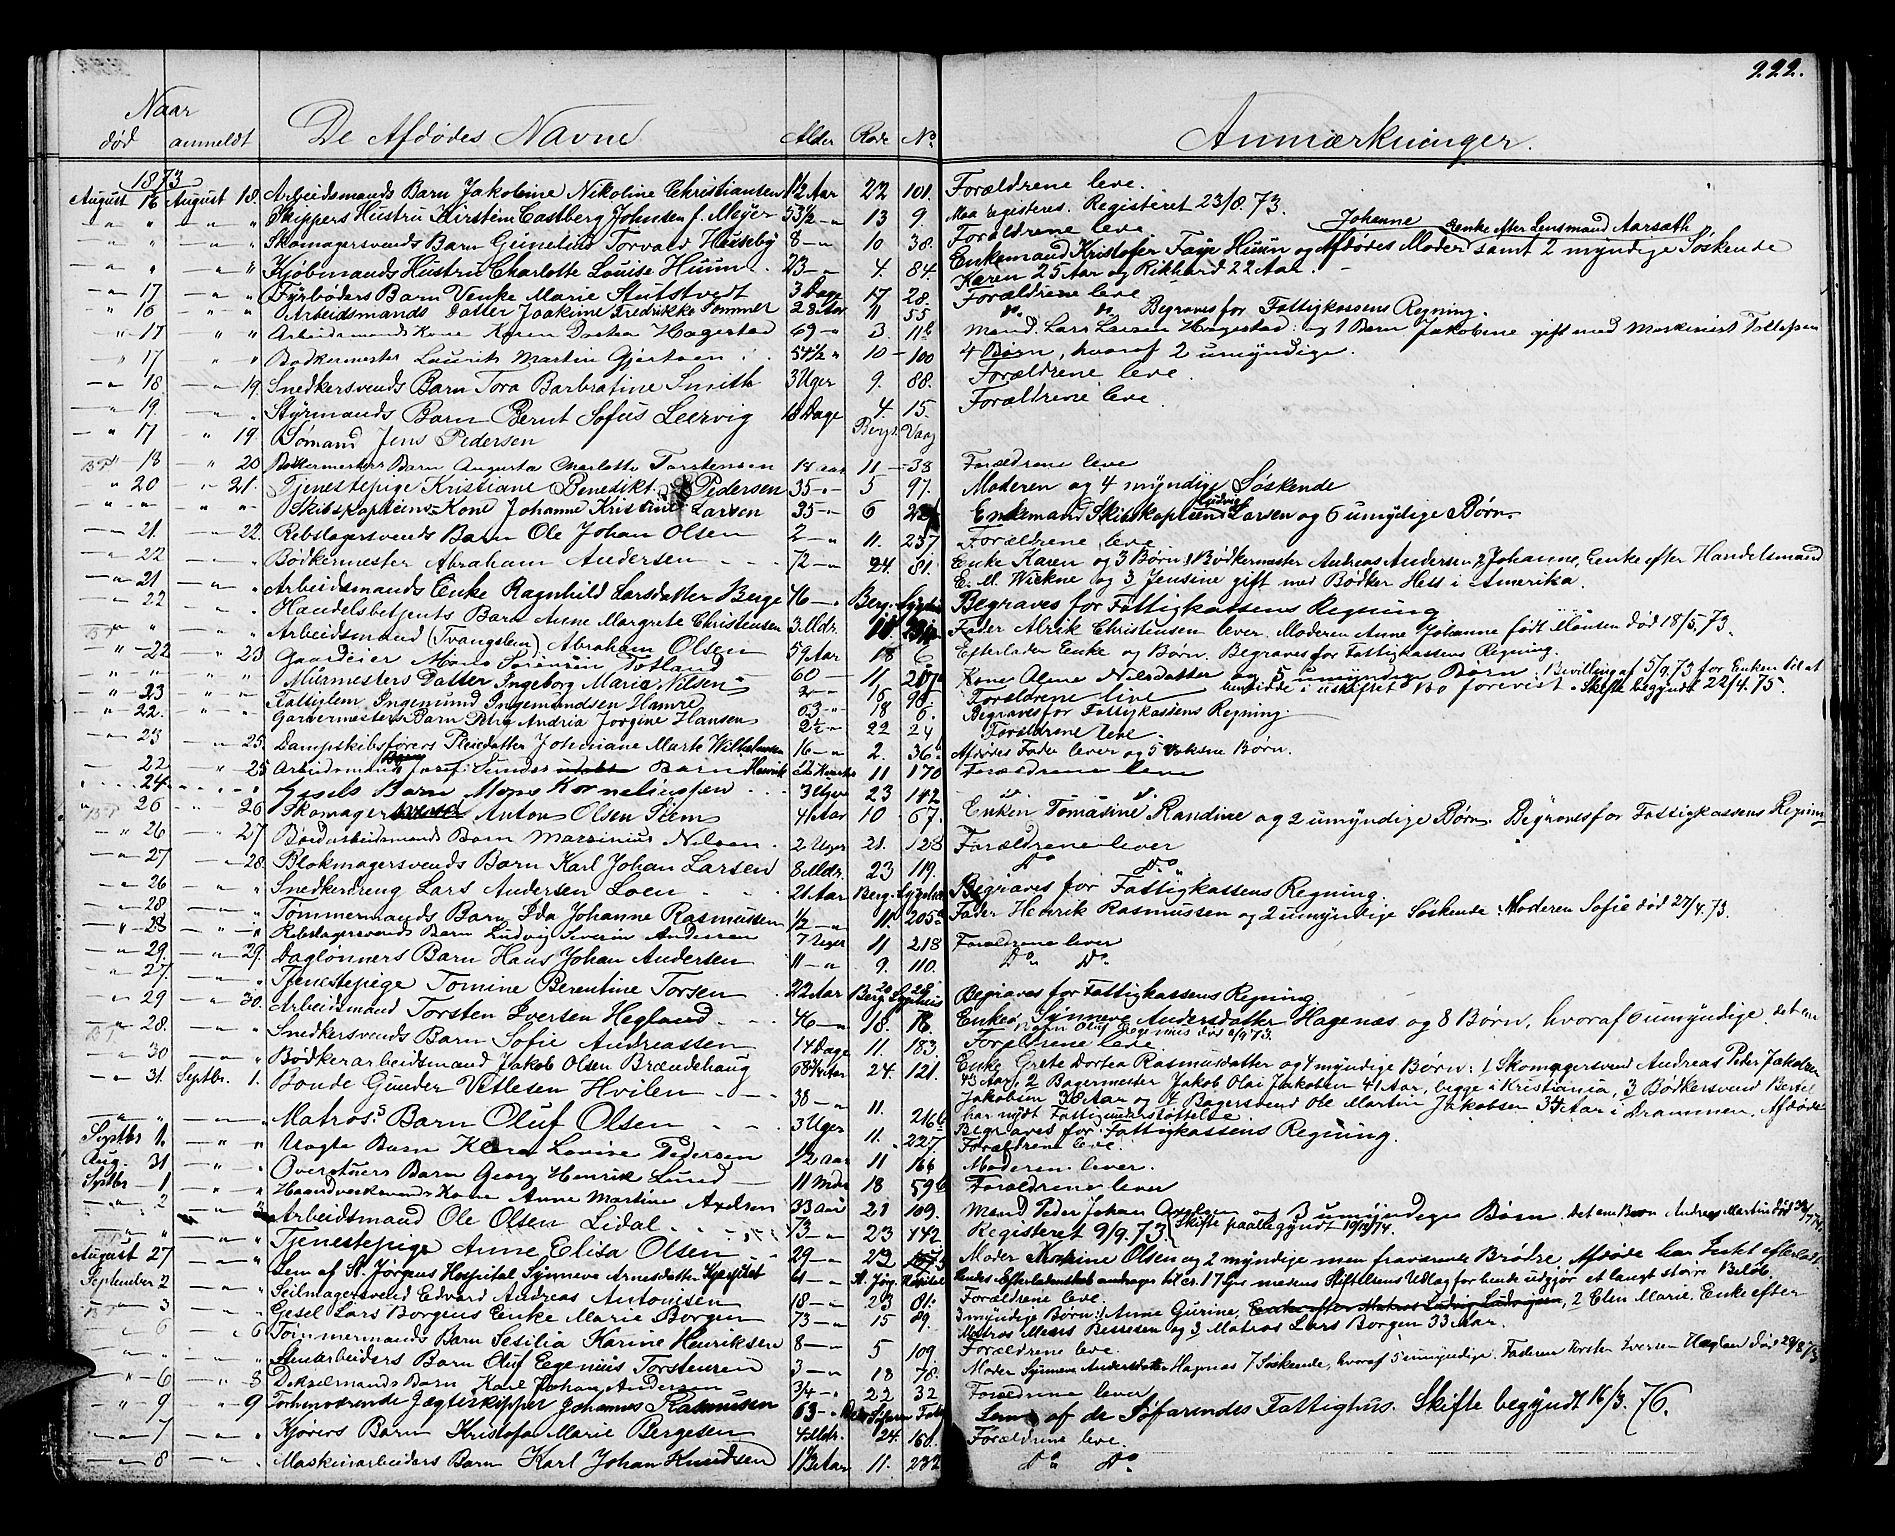 222.
Naar
død anmeldt De Afdødes Navne Alder Rode No Anmærkninger.
1873
August 16 August 18. Arbeidsmands Barn Jakobine Nikoline Christiansen 1/2 Aar 22 101. Forældrene leve.
" " Skippers Hustru Kirstine Castberg Johnsen f. Meyer 53 1/2 13 9. Maa registeres. Registeret 23/8. 73.
" " Skomagersvends Barn Torvald Heuseby 8 " 10 38. Forældrene leve.
" " Kjøbmands Hustru Charlotte Louise Huun. 23 " 4. 84. Enkemand Kristofer Faye Huun og Afdødes Moder Johanne Enke efter Lensmand Aarsæth samt 2 myndige Søskende
Karen 25 Aar og Rikhard 22 Aar.
17 " Fyrbøders Barn Venke Marie Stutstvedt 3 Dage 17 28. Forældrene leve
16 " Arbeidsmands Datter Joakime Fredrikke Sommer 28 Aar 11 55 Do Do Begraves for Fattigkassens Regning.
17 " Arbeidsmands Kone Karen Dortea Hagestad 69 3. 11b Mand: Lars Larsen Hagestad: og 1 Barn Jakobine gift med Maskinist Tollefsen
17 " Bødkermester Laurits Martin Gjertsen 54 1/2 " 10 100 4 Børn, hvoraf 2 umyndige.
18 19. Snedkersvends Barn Tora Barbratine Smith 3 Uger 9. 88. Forældrene leve.
19. " Styrmands Barn Bernt Sofus Leervig 13 Dage 4. 15. Forældrene leve.
17 19 Sømand Jens Pedersen Bergs. Vaag
18 20 Bødkermesters Barn Augusta Charlotte Torstensen 18 aar 11 33 Forældrene leve
20 21. Tjenestepige Kristiane Benedikt. Pedersen 35 " 5 97. Moderen og 4 myndige Søskende
" " Skibskapteins Kone Johanne Kristine Larsen 35 " 6 Enkemand Skibskaptein Ludvig Larsen og 6 umydige Børn.
21. 22. Rebslagersvends Barn Ole Johan Olsen 2 " 11. 237 Forældrene leve
22 " Bødkermester Abraham Andersen 72 24. 81. Enke Karen og 3 Børn: 1 Bødkermester Andreas Andersen, 2 Johanne, Enke efter Handelsmand
E. M. Wiekne og 3 Jensine gift med Bødker Hess i Amerika.
21. " Arbeidsmands Enke Ragnhild Larsdatter Berge 76 " Berg. Sygehus Begraves for Fattigkassens Regning
22 " Handelsbetjents Barn Anne Margrete Christensen 3. Mdr. Fader Alrik Christensen lever. Moderen Anne Johanne født Monsen død 18/5. 73.
" " Arbeidsmand (Tvangslem) Abraham Olsen 59 Aar 18 6 Efterlader Enke og Børn. Begraves for Fattigkassens Regning.
22 23 Gaardeier Mons Sørensen Totland 60 11 Kone Oline Nilsdatter og 5 umyndige Børn. Bevilling af 5/9. 73 for Enken til at
hensidde i uskiftet Bo forevist. Skifte begyndt 22/4. 75.
" " Murmesters Datter Ingeborg Marie Nilsen 16 90 Forældrene leve
23 " Fattiglem Ingemund Ingemundsen Hamre 63 18 6. Begraves for Fattigkassens Regning.
22. " Garvermesters Barn Petra Andria Jørgine Hansen 2 1/2 22 24 Forældrene leve.
23 25. Dampskibsførers Pleiedatter Johanne Marte Wilhelmsen 16 " 2. 36. Afdødes Fader lever og 5 voksne Børn.
22 25 Arbeidsmand Josef Sundes Barn Henrik 11 170 Forældrene leve
24. " Gjesels Barn Mons Kornelinssen 3 Uger 23 142 " "
26 26 Skomager Anton Olsen Siem 41 Aar 10 67. Enken Tomasine Randine og 2 umyndige Børn. Begraves for Fattigkassens Regning
26 27 Bordarbeidsmands Barn Marsinius Nilsen. 2 Uger 21. 128 Forældrene lever
27 28. Blokmagersvends Barn Karl Johan Larsen 8 Mdr. 23 119. Do Do
26 " Snedkerdreng Lars Andersen Loen 21 Aar Berg. Sygehus Begraves for Fattigkassens Regning.
28 " Tømmermands Barn Ida Johanne Rasmussen 1/2 " 11. 205a Fader Henrik Rasmussen og 2 umyndige Søskende. Moderen Sofie død 27/4. 73.
28 " Rebslagersvends Barn Ludvig Severin Andersen 7 Uger 11 218 Forældrene lever
29. 29. Daglønners Barn Hans Johan Andersen 11 " 9. 110. Do Do
27. " Tjenestepige Tomine Berentine Torsen 22 Aar Berg. Sygehus Begraves for Fattigkassens Regning.
29 30. Arbeidsmand Torsten Iversen Hegland 46 " 18. 78. Enken Synneve Andersdatter Hagenæs og 8 Børn, hvoraf 6 umyndige. det ene
Barn Oluf Eegenius død 6/9 73.
28. " Snedkersvends Barn Sofie Andreassen 14 Dage 11. 183. Forældrene leve
30 " Bødkerarbeidsmand Jakob Olsen Brændehaug 68 Aar 24. 121. Enke Grete Dortea Rasmusdatter og 4 myndige Børn: 1 Skomagersvend Andreas Peder Jakobsen
43 Aar, 2 Bagermester Jakob Olai Jakobsen 41 Aar, begge i Kristiania, 3 Bødkersvend Bertel
Jakobsen 38 Aar og 4 Bagersvend Ole Martin Jakobsen 34 Aar i Drammen, Afdøde
har nydt Fattigunderstøttelse.
31. Septbr. 1. Bonde Gunder Vetlesen Hvilen 38 " 11. 216b Begraves for Fattigkassens Regning.
" " Matros's Barn Oluf Olsen 3 Uger 11. 227. Forældrene leve.
Septbr 1. " Vogte Barn Klara Lovise Pedersen 1/2 aar 11 166 Moderen lever.
Aug. 31 " Overstuers Barn Georg Henrik Lund 11 Mdr 18 59b Forældrene lever
Septbr 1 " Haandverksvends Kone Anne Martine Axelsen 33 aar 21 109. Mand Peder Johan Axelsen og 3 umyndige Børn. det ene Barn Andreas Martin død
2 Arbeidsmand Ole Olsen Lidal 73 " 23 142 Registeret 9/9. 73. Skifte paabegyndt 19/12 74.
" " Tjenestepige Anne Elisa Olsen 29 23 Moder Olsen og 2 myndige men fraværende Brødre. Afdøde har Intet efterladt.
August 27 " Lem af St. Jørgens Hospital Synneve Arnesdatter 61 St. Jørg. Hospital Hendes Efterladenskab andrager til cr. 17 medens Stiftelsens Udlæg for hende udgjør et langt større Beløb.
September 2 " Seilmagersvend Edvard Andreas Antonisen 18 23 81. Forældrene leve.
3 " Gjesel Lars Borgens Enke Marie Borgen 73 15 29. 3 myndige Børn: 1 Anne Gurine, Enke efter Matros Ludvig Ludvigsen, 2 Elen Marie, Enke efter
Matros Moses Bessesen og 3 Matros Lars Borgen 33 Aar.
6 6 Tømmermands Barn Sesilia Karine Henriksen 8 5 109. Forældrene leve.
" " Stenarbeiders Barn Oluf Eegenius Torstensen 3 18 78. Moder Synneve Andersdatter Hagnæs 7 Søskende, hvoraf 5 umyndige. Faderen Torsten Iversen Hegland død 29/8 73
6 8 Dekselmands Barn Karl Johan Andersen 3/4 22 32 Forældrene lever
9 9 Forhenværende Jægteskipper Johannes Rasmussen 63 Lem af de Søfarendes Fattighus. Skifte begyndt 16/3. 76.
7 " Kjørers Barn Kristofa Marie Bergesen 4 Mdr. 24. 160. Forældrene leve.
8 " Maskinarbeiders Barn Karl Johan Knudsen 11. 232 Do Do